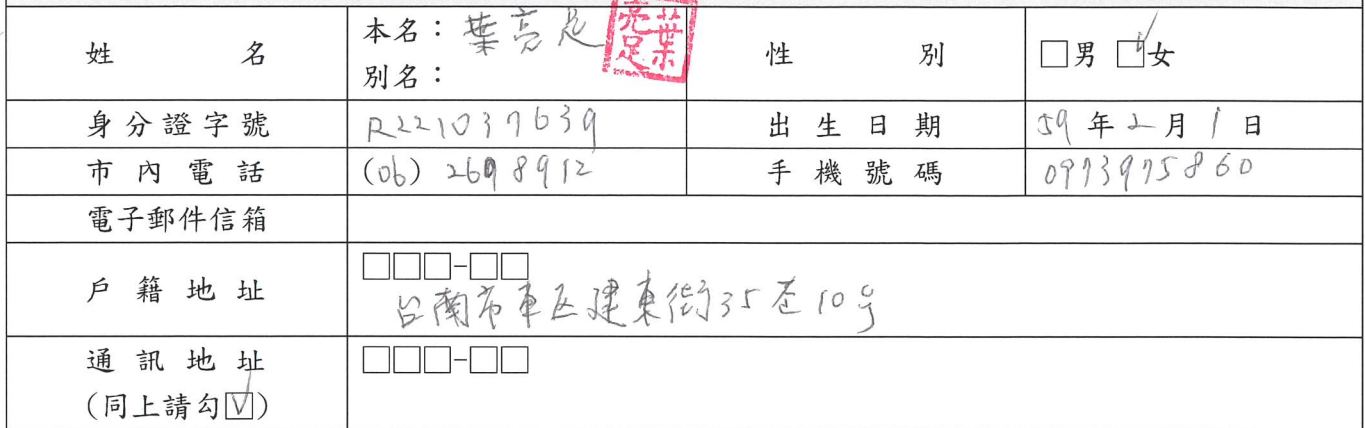 姓 名 本名：葉亮足 葉亮足 性 別 □男 ☑女
別名：
身分證字號 R221037639 出生日期 59年2月1日
市內電話 (06) 2698912 手機號碼 0973975860
電子郵件信箱
戶籍地址 □□□-□□
台南市東区建東街35巷10号
通訊地址 □□□-□□
(同上請勾☑)